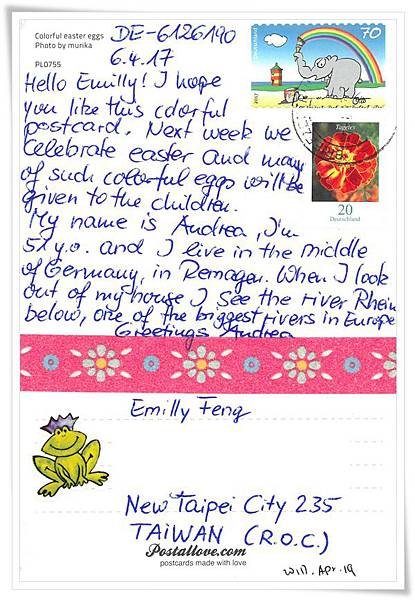 Colorful easter eggs
Photo by munka
PL0755
DE-6126190
6.4.17
Deutschland
70
2017
Hello Emilly! I hope
you like this colorful
postcard. Next week we
celebrate easter and many
of such colorful eggs will be
given to the children.
Tagetes
20
Deutschland
My name is Andrea, I'm
51 y.o. and I live in the middle
of Germany, in Remagen. When I look
out of my house I see the river Rhein
below, one of the biggest rivers in Europe
Greetings Andrea
Emilly Feng
New Taipei City 235
TAIWAN (R.O.C.)
Postallove.com
postcards made with love
Apr. 19